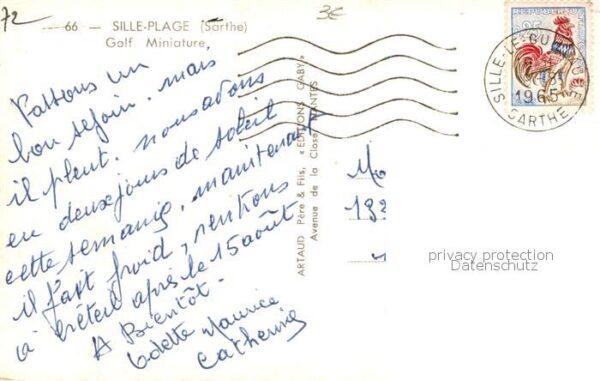 72
3€
66 - SILLE-PLAGE (Sarthe)
Golf Miniature
Passons un
bon séjour. mais
il pleut. nous avons
eu deux jours de soleil
cette semaine, maintenant
il fait froid, rentrons
à Créteil après le 15 août
A Bientôt.
Odette Maurice
Catherine
ARTAUD Père & Fils, « EDITIONS GABY »
Avenue de la Close, NANTES
SILLE-LE-GUILLAUME
1965
SARTHE
privacy protection
Datenschutz